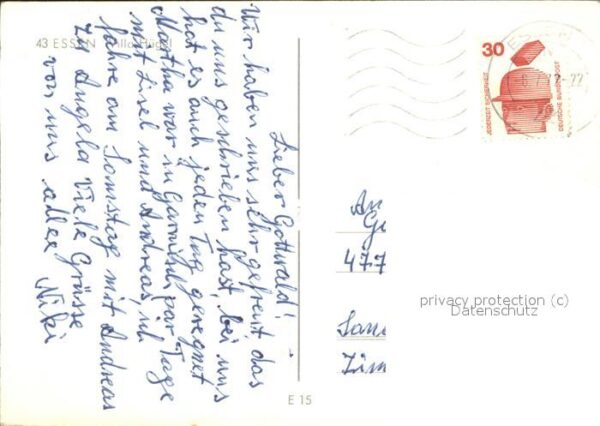 43 ESSEN Villa Hügel
Lieber Gottwald!
Wir haben uns sehr gefreut, das
du uns geschrieben hast, bei uns
hat es auch jeden Tag geregnet
Martha war in Garmisch par Tage
mit Lisel und Andreas, ich
fahre am Samstag mit Andreas
zu Angela Viele Grüsse
von uns allen Niki
E 15
30
JEDERZEIT SICHERHEIT
DEUTSCHE BUNDESPOST
ESSEN
An
Ge
477
privacy protection (c)
Datenschutz